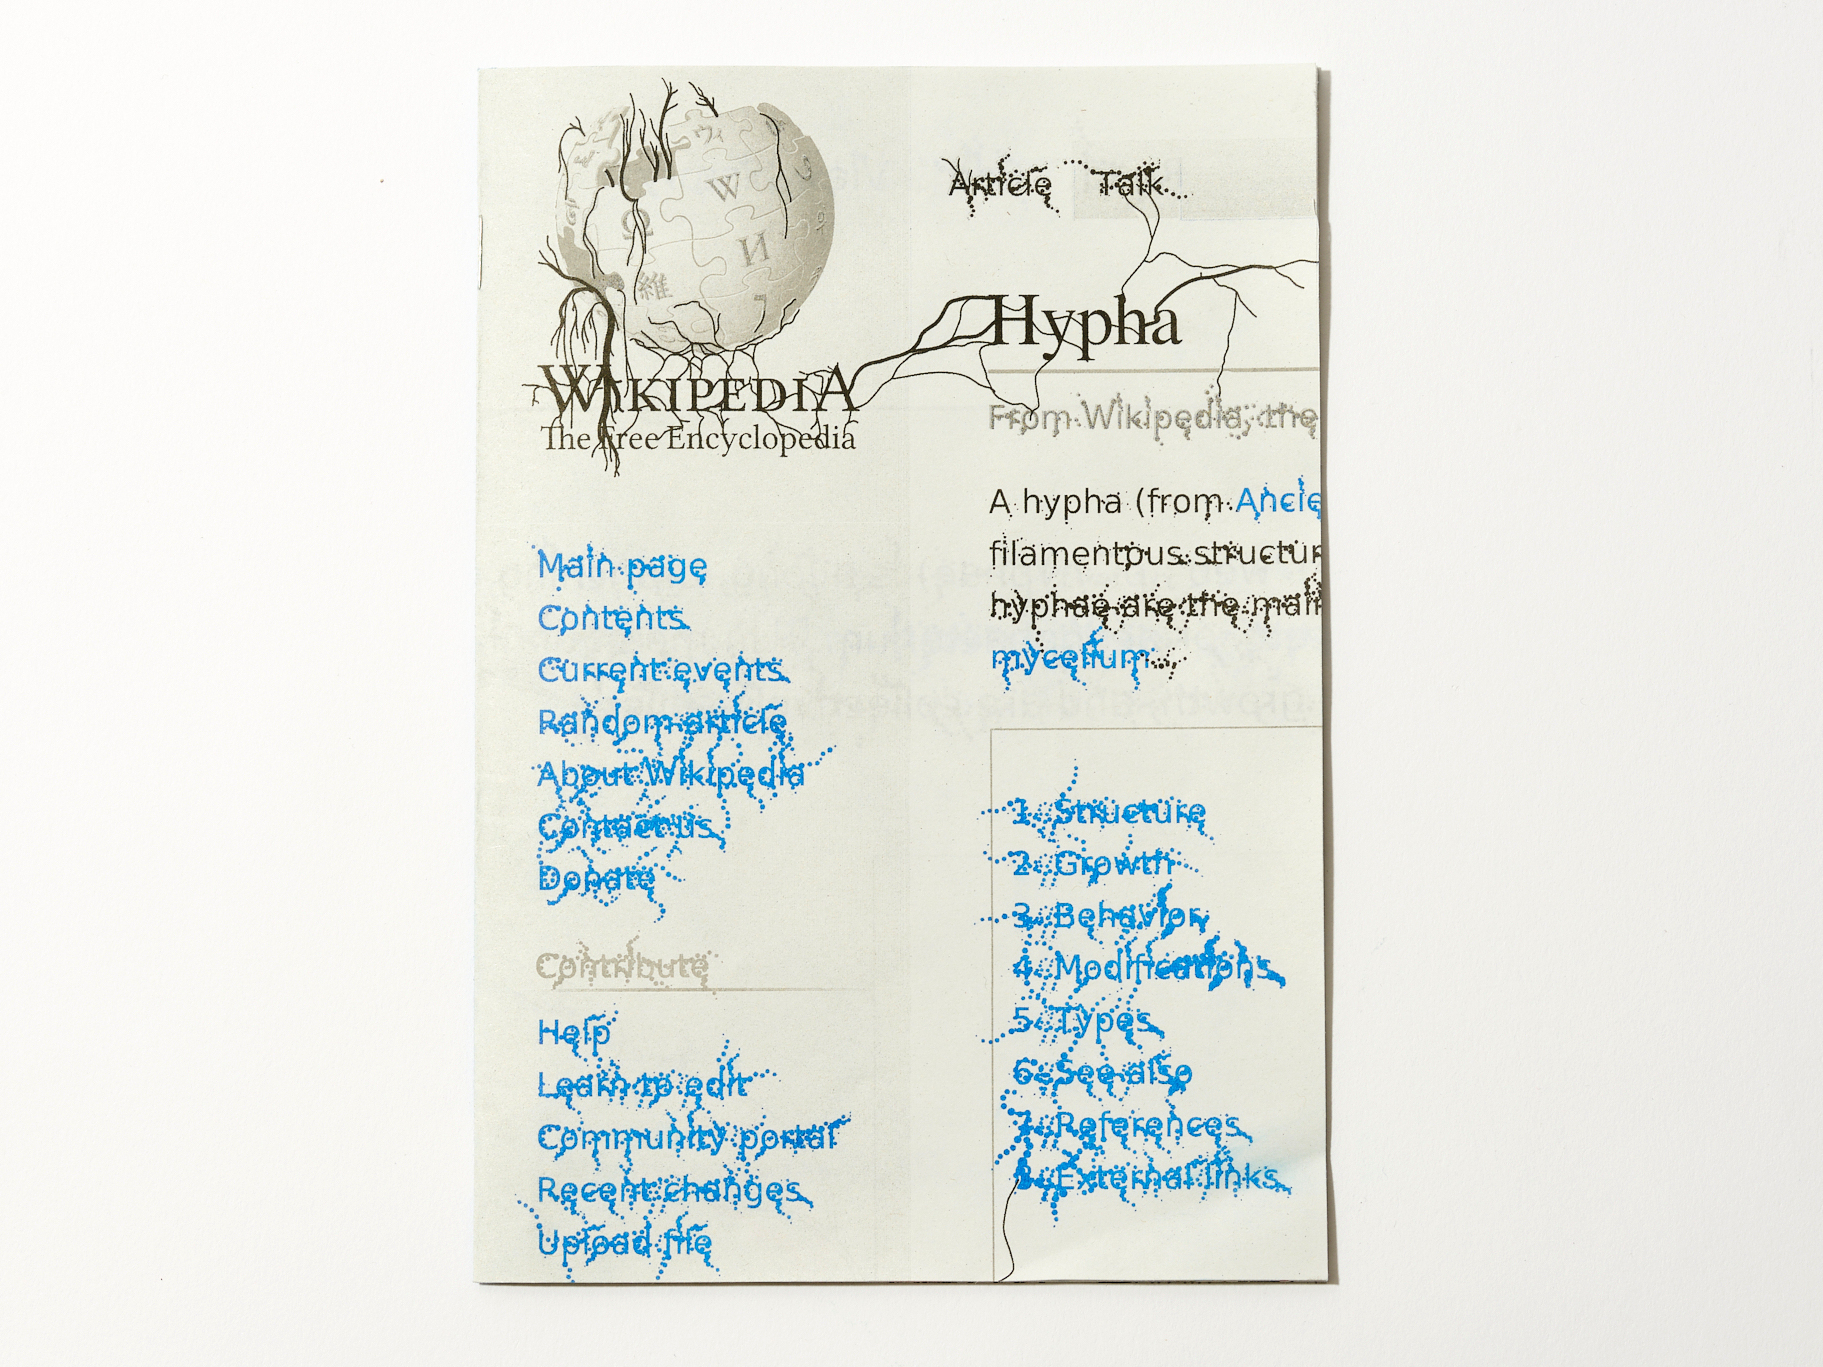 W
Ω
И
維
ウィ
WIKIPEDIA
The Free Encyclopedia
Main page
Contents
Current events
Random article
About Wikipedia
Contact us
Donate
Contribute
Help
Learn to edit
Community portal
Recent changes
Upload file
Article Talk
Hypha
From Wikipedia, the
A hypha (from Ancie
filamentous structur
hyphae are the main
mycelium.
1. Structure
2. Growth
3. Behavior
4. Modifications
5. Types
6. See also
7. References
8. External links